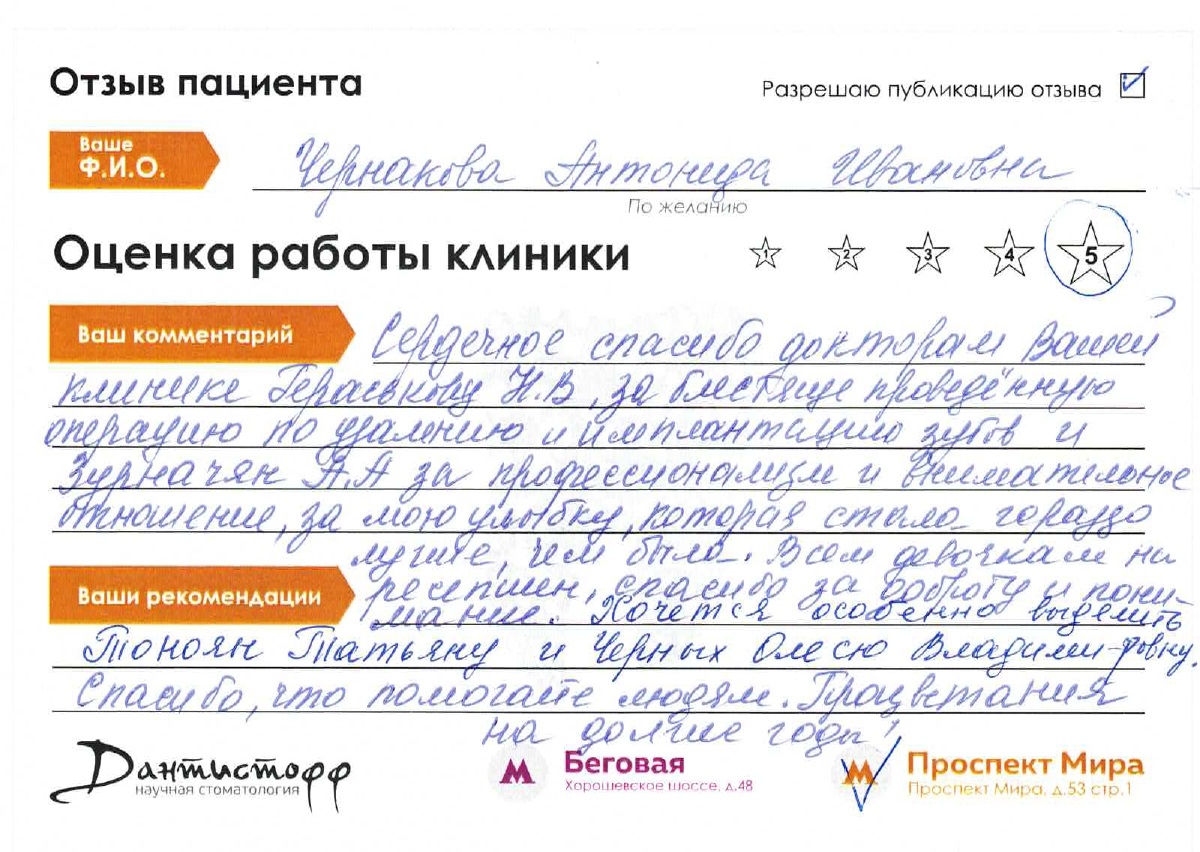 Отзыв пациента
Разрешаю публикацию отзыва
Ваше Ф.И.О.
Чернакова Антонида Ивановна
По желанию
Оценка работы клиники
1 2 3 4 5
Ваш комментарий
Сердечное спасибо докторам Вашей
клинике Гераськову Н.В, за блестяще проведённую
операцию по удалению и имплантацию зубов и
Зурначян А.А за профессионализм и внимательное
отношение, за мою улыбку, которая стала гораздо
лучше, чем было. Всем девочкам на
Ваши рекомендации
ресепшен, спасибо за доброту и пони-
мание. Хочется особенно выделить
Тоноян Татьяну и Черных Олесю Владими-ровну.
Спасибо, что помогаете людям. Процветания
на долгие годы!
Дантистофф
научная стоматология
Беговая
Хорошевское шоссе, д.48
Проспект Мира
Проспект Мира, д.53 стр.1